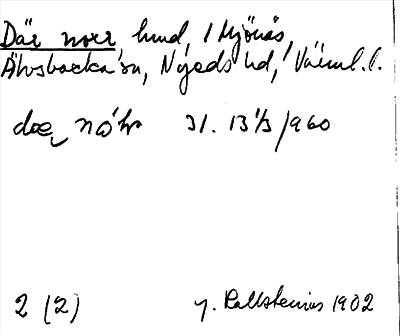 Där norr, hmd, i Mjönäs,
Älvsbacka sn, Nyeds hd, Värml. l.
31. 13/3 1960
2 (2) G. Kallstenius 1902